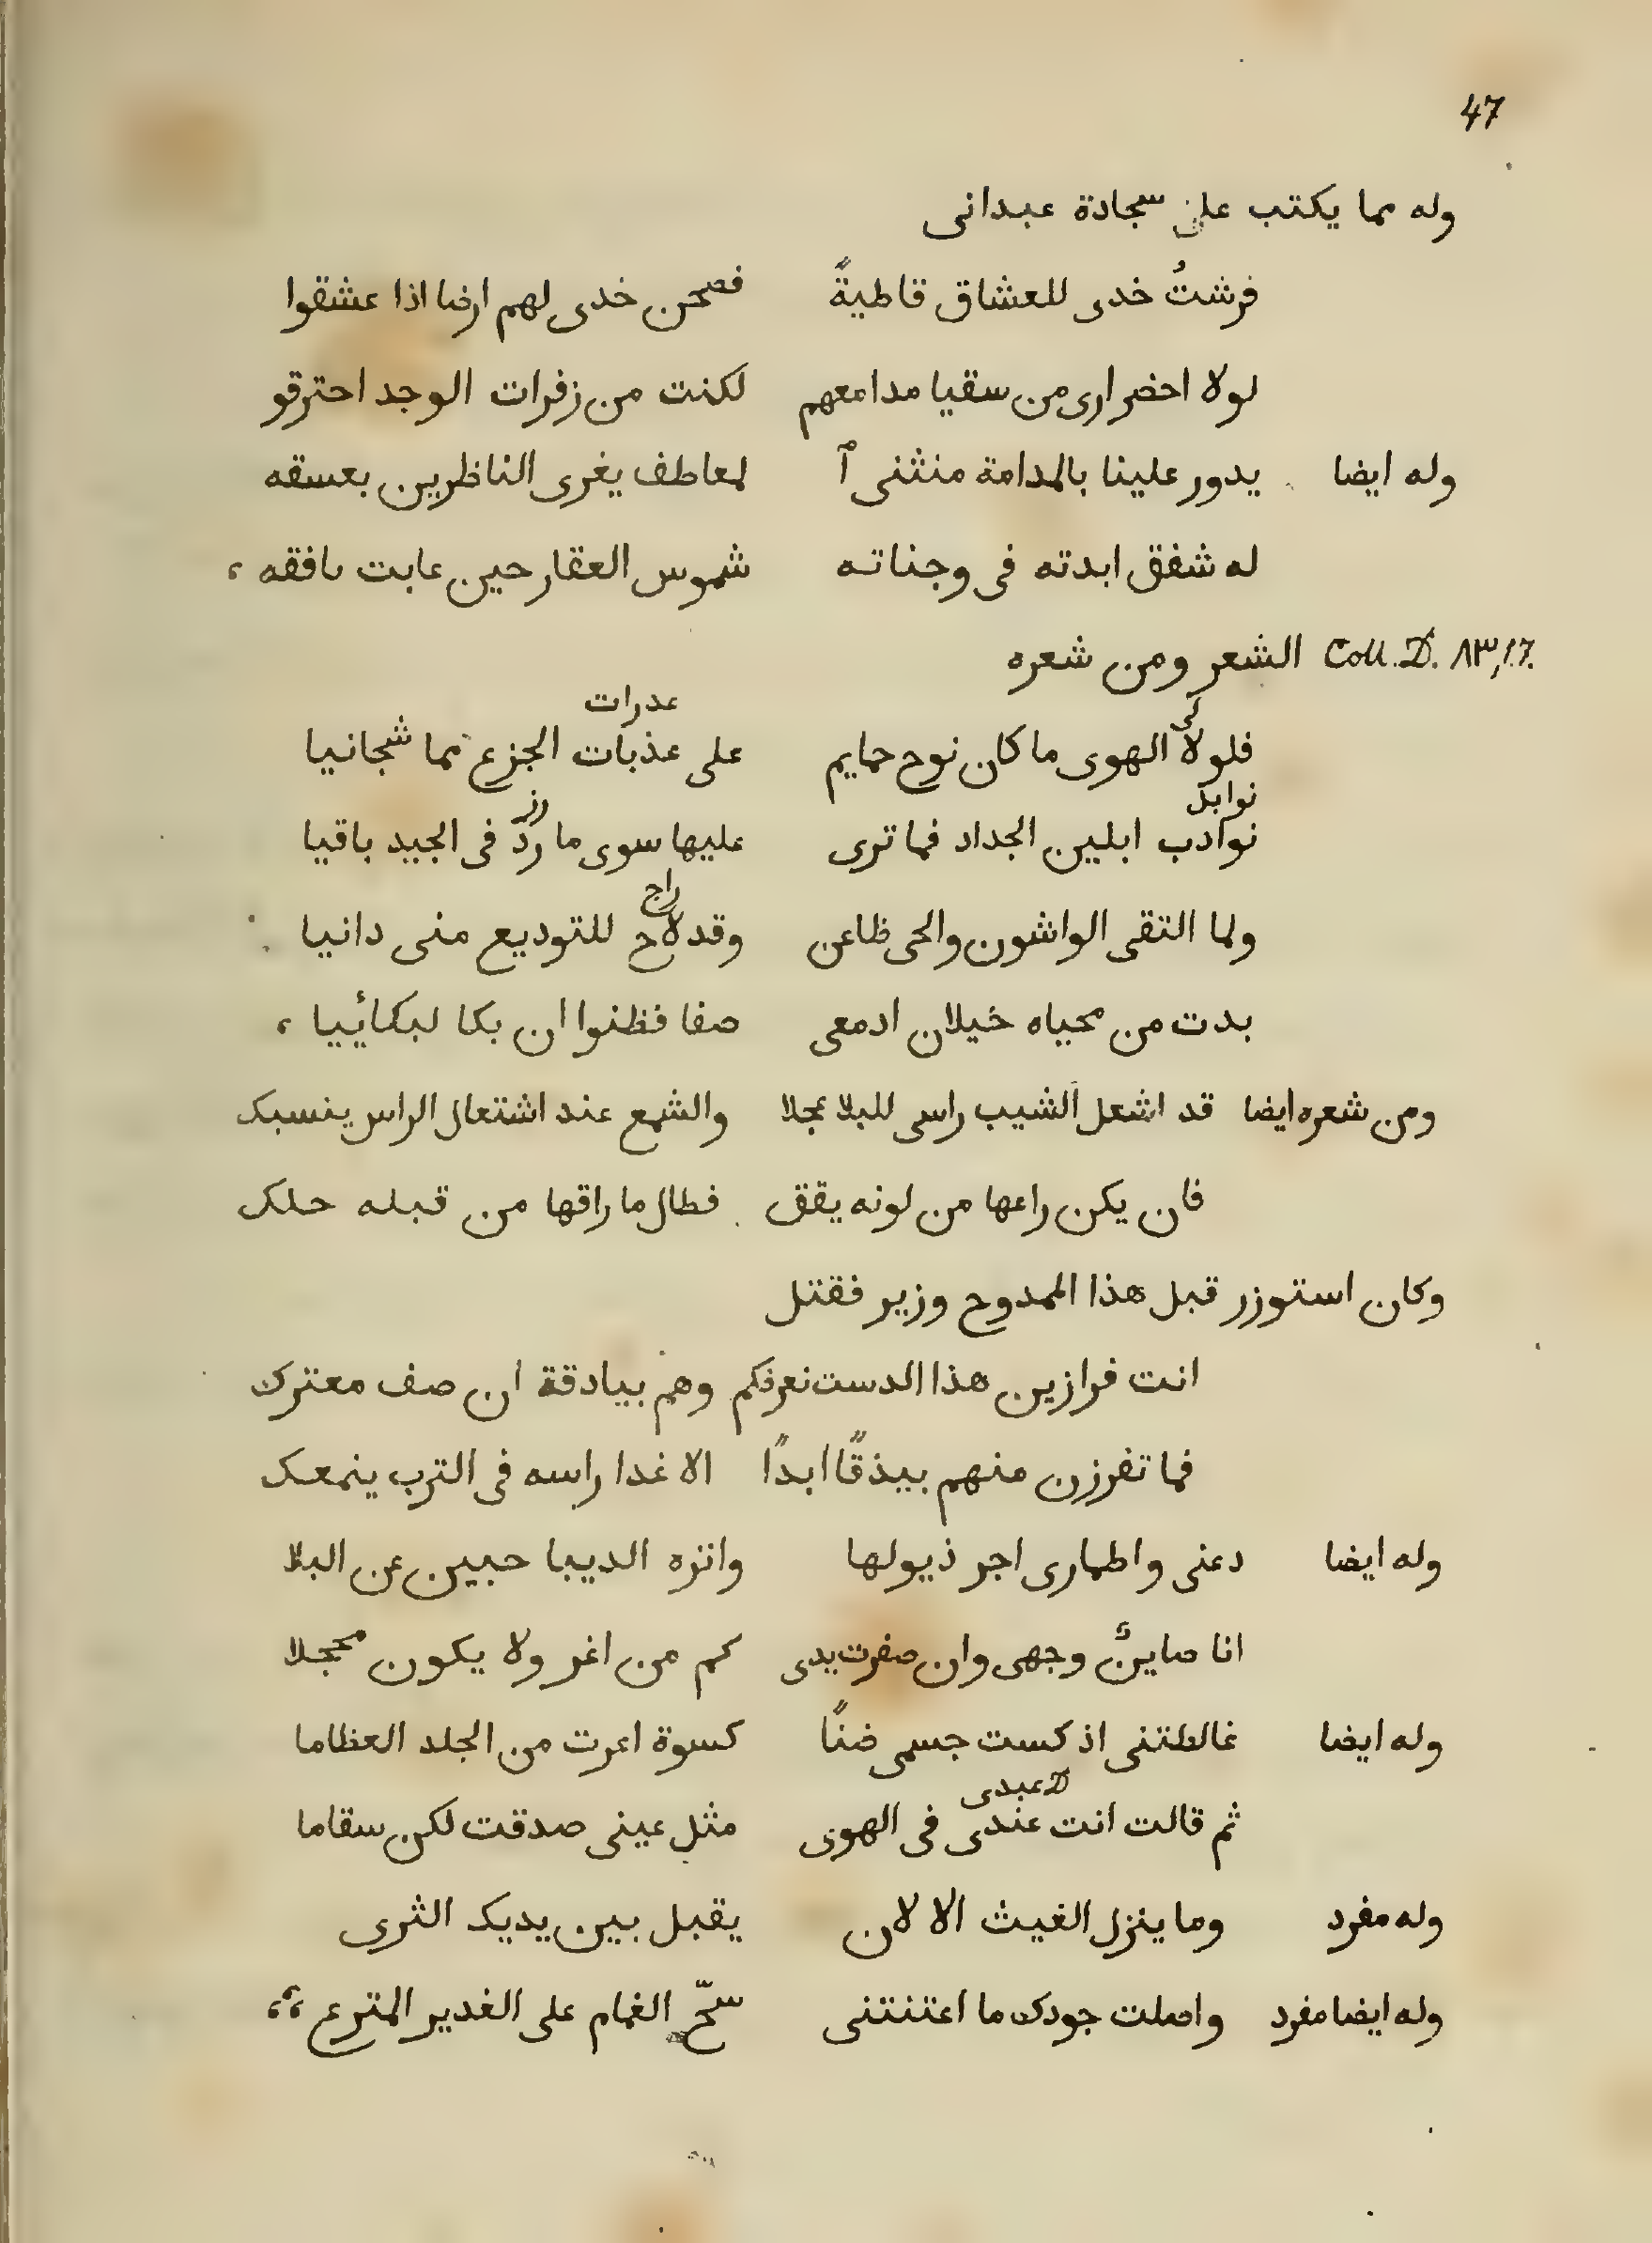 47
وله مما يكتب على سجادة عبدانى
فرشتُ خدى للعشاق قاطبةً فصحن خدى لهم ارضا اذا عشقوا
لولا احضرارى من سقيا مدامعهم لكنت من زفرات الوجد احترقو
وله ايضا يدور علينا بالمدامة منثنى آ لمعاطف يغرى الناظرين بعسقه
له شفق ابدته فى وجناته شموس العقار حين عابت بافقه ،
Coll. D. ٨٣,١٦. الشعر ومن شعره
عدرات
فلولا الهوى ما كان نوح حمايم على عذبات الجزع مما شجانيا
نوابد
نوادب ابلين الجداد فما ترى عليها سوى ما رد فى الجيد باقيا
راج
ولما التقى الواشون والحى ظاعن وقد لاح للتوديع منى دانيا
بدت من محياه خيلان ادمعى صفا فظنوا ان بكا لبكائيا ،
ومن شعره ايضا قد اشعل الشيب راسى للبلا عجلا والشمع عند اشتعال الراس ينسبك
فان يكن راعها من لونه يقق فطال ما راقها من قبله حلك
وكان استوزر قبل هذا الممدوح وزير فقتل
انت فرازين هذا الدست نعرفكم وهم بيادقة ان صف معترك
فما تفرزن منهم بيذقًا ابدًا الا غدا راسه فى الترب ينمعك
وله ايضا دعنى واطمارى اجر ذيولها وانزه الديبا حبين عن البلا
انا صاين وجهى وان صفرت يدى كم من اغر ولا يكون محجلا
وله ايضا غالطتنى اذ كست جسمى ضنًا كسوة اعرت من الجلد العظاما
D عبدى
ثم قالت انت عندى فى الهوى مثل عينى صدقت لكن سقاما
وله مفرد وما ينزل الغيث الا لان يقبل بين يديك الثرى
وله ايضا مفرد واصلت جودك ما اعتنتنى سحّ الغمام على الغدير المترع ،،